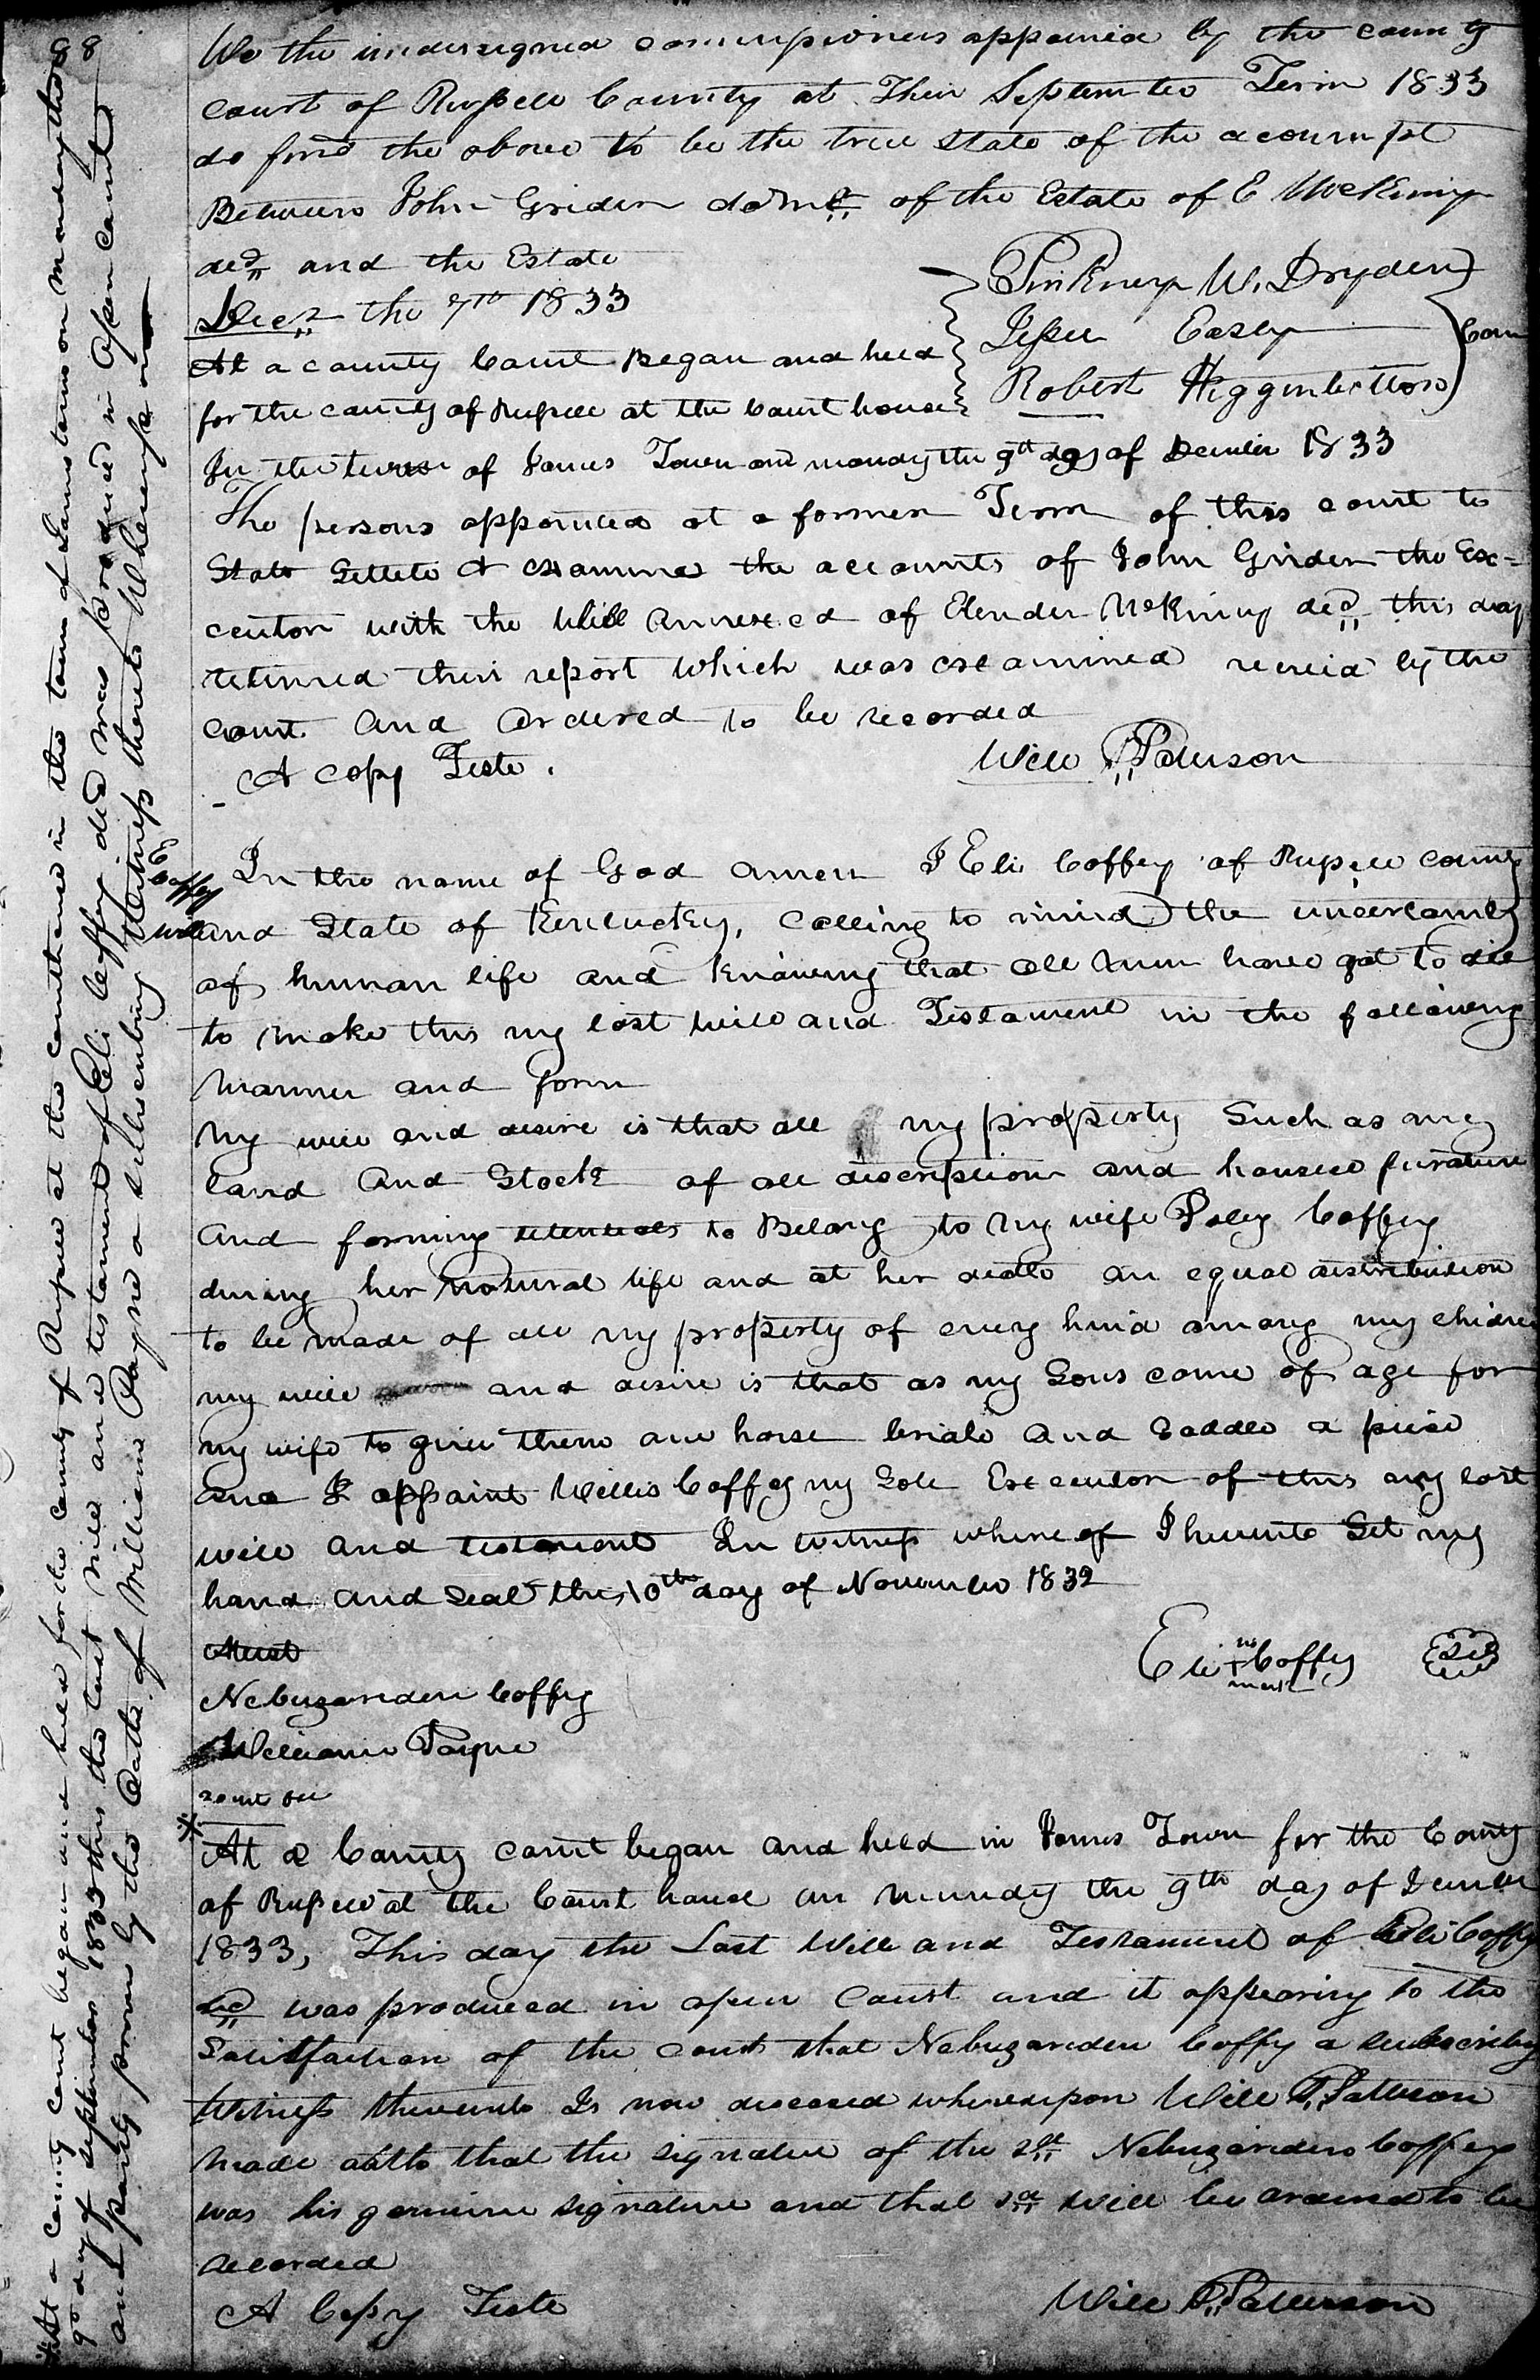 88
We the undersigned commissioners appointed by the county
court of Russell County at Their September Term 1833
do find the above to be the true state of the accoumpt
Between John Grider of the Estate of E McKiny
decd and the Estate
Decr the 7th 1833
Pinkney W. Dryden
Jesse Easly
Robert Higginbottom
Com
At a county Court Began and held
for the county of Russell at the Court house
In the town of James Town on monday the 9th day of Decmber 1833
The persons appointed at a former Term of this court to
State Settle & examine the accounts of John Grider the Ex=
ecutor with the Will annexed of Elender McKiny decd this day
returned their report which was examined receivd by the
court and ordered to be recorded
A copy Teste.
Will P Paterson
E Coffey will
In the name of God amen I Eli Coffey of Russell county
and State of Kentucky, calling to mind the uncertainty
of human life and knowing that all men have got to die
to make this my last will and Testament in the following
manner and form
My will and desire is that all my property Such as my
land and Stock of all discription and houseld furniture
and farming utentials to Belong to my wife Polly Coffey
during her natural life and at her death an equal distribution
to be made of all my property of every kind among my children
my will and desire is that as my Sons come of age for
my wife to give them one horse bridle and Saddle a piece
and I appoint Willis Coffey my Sole Executor of this my last
will and testament In witness where of I hereunto Set my
hand and Seal this 10th day of November 1832
Attest
Eli his + mark Coffey Seal
Nebuzaraden Coffey
William Payne
* At a County court began and held in James Town for the County
of Russell at the Court house on monday the 9th day of Decmber
1833, This day the Last Will and Testament of Eli Coffey
decd was produced in open Court and it appearing to the
Satisfaction of the Court that Nebuzaraden Coffey a subscribing
Witness thereunto Is now deceased whereupon Will P Patterson
made oath that the signature of the sd Nebuzaraden Coffey
was his genuine signature and that sd will be ordered to be
recorded
A Copy Teste
Will P Patterson
*At a county court began and held for the county of Russell at the courthouse in the town of Jamestown on monday the
9th day of September 1833 this the last will and testament of Eli Coffey decd was produced in open court
and partly proven by the Oath of William Payne a subscribing Witness thereto Whereupon